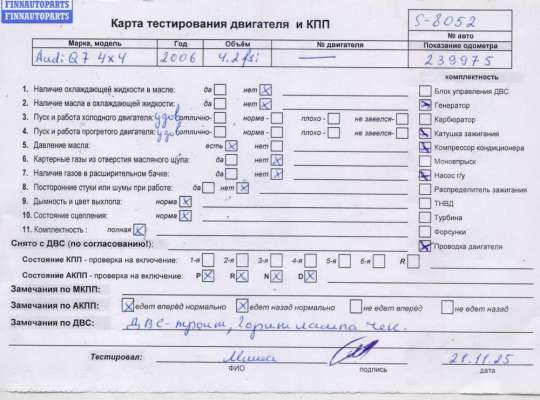 FINNAUTOPARTS
FINNAUTOPARTS
Карта тестирования двигателя и КПП
S-8052
№ авто
Марка, модель Год Объём № двигателя Показание одометра
Audi Q7 4x4 2006 4.2 fsi — 239975
комплектность
1. Наличие охлаждающей жидкости в масле: да нет
2. Наличие масла в охлаждающей жидкости: да нет
3. Пуск и работа холодного двигателя: удов отлично- норма - плохо - не завелся-
4. Пуск и работа прогретого двигателя: удов отлично- норма - плохо - не завелся-
5. Давление масла: есть нет
6. Картерные газы из отверстия масляного щупа: да нет
7. Наличие газов в расширительном бачке: да нет
8. Посторонние стуки или шумы при работе: да нет
9. Дымность и цвет выхлопа: норма
10. Состояние сцепления: норма
11. Комплектность : полная
Блок управления ДВС
Генератор
Карбюратор
Катушка зажигания
Компрессор кондиционера
Моновпрыск
Насос г/у
Распределитель зажигания
ТНВД
Турбина
Форсунки
Проводка двигателя
Снято с ДВС (по согласованию!):
Состояние КПП - проверка на включение: 1-я 2-я 3-я 4-я 5-я 6-я R
Состояние АКПП - проверка на включение: P R N D
Замечания по МКПП:
Замечания по АКПП: едет вперёд нормально едет назад нормально не едет вперёд не едет назад
Замечания по ДВС: ДВС-троит, Горит лампа чек.
Тестировал: Миша 21.11.25
ФИО подпись дата